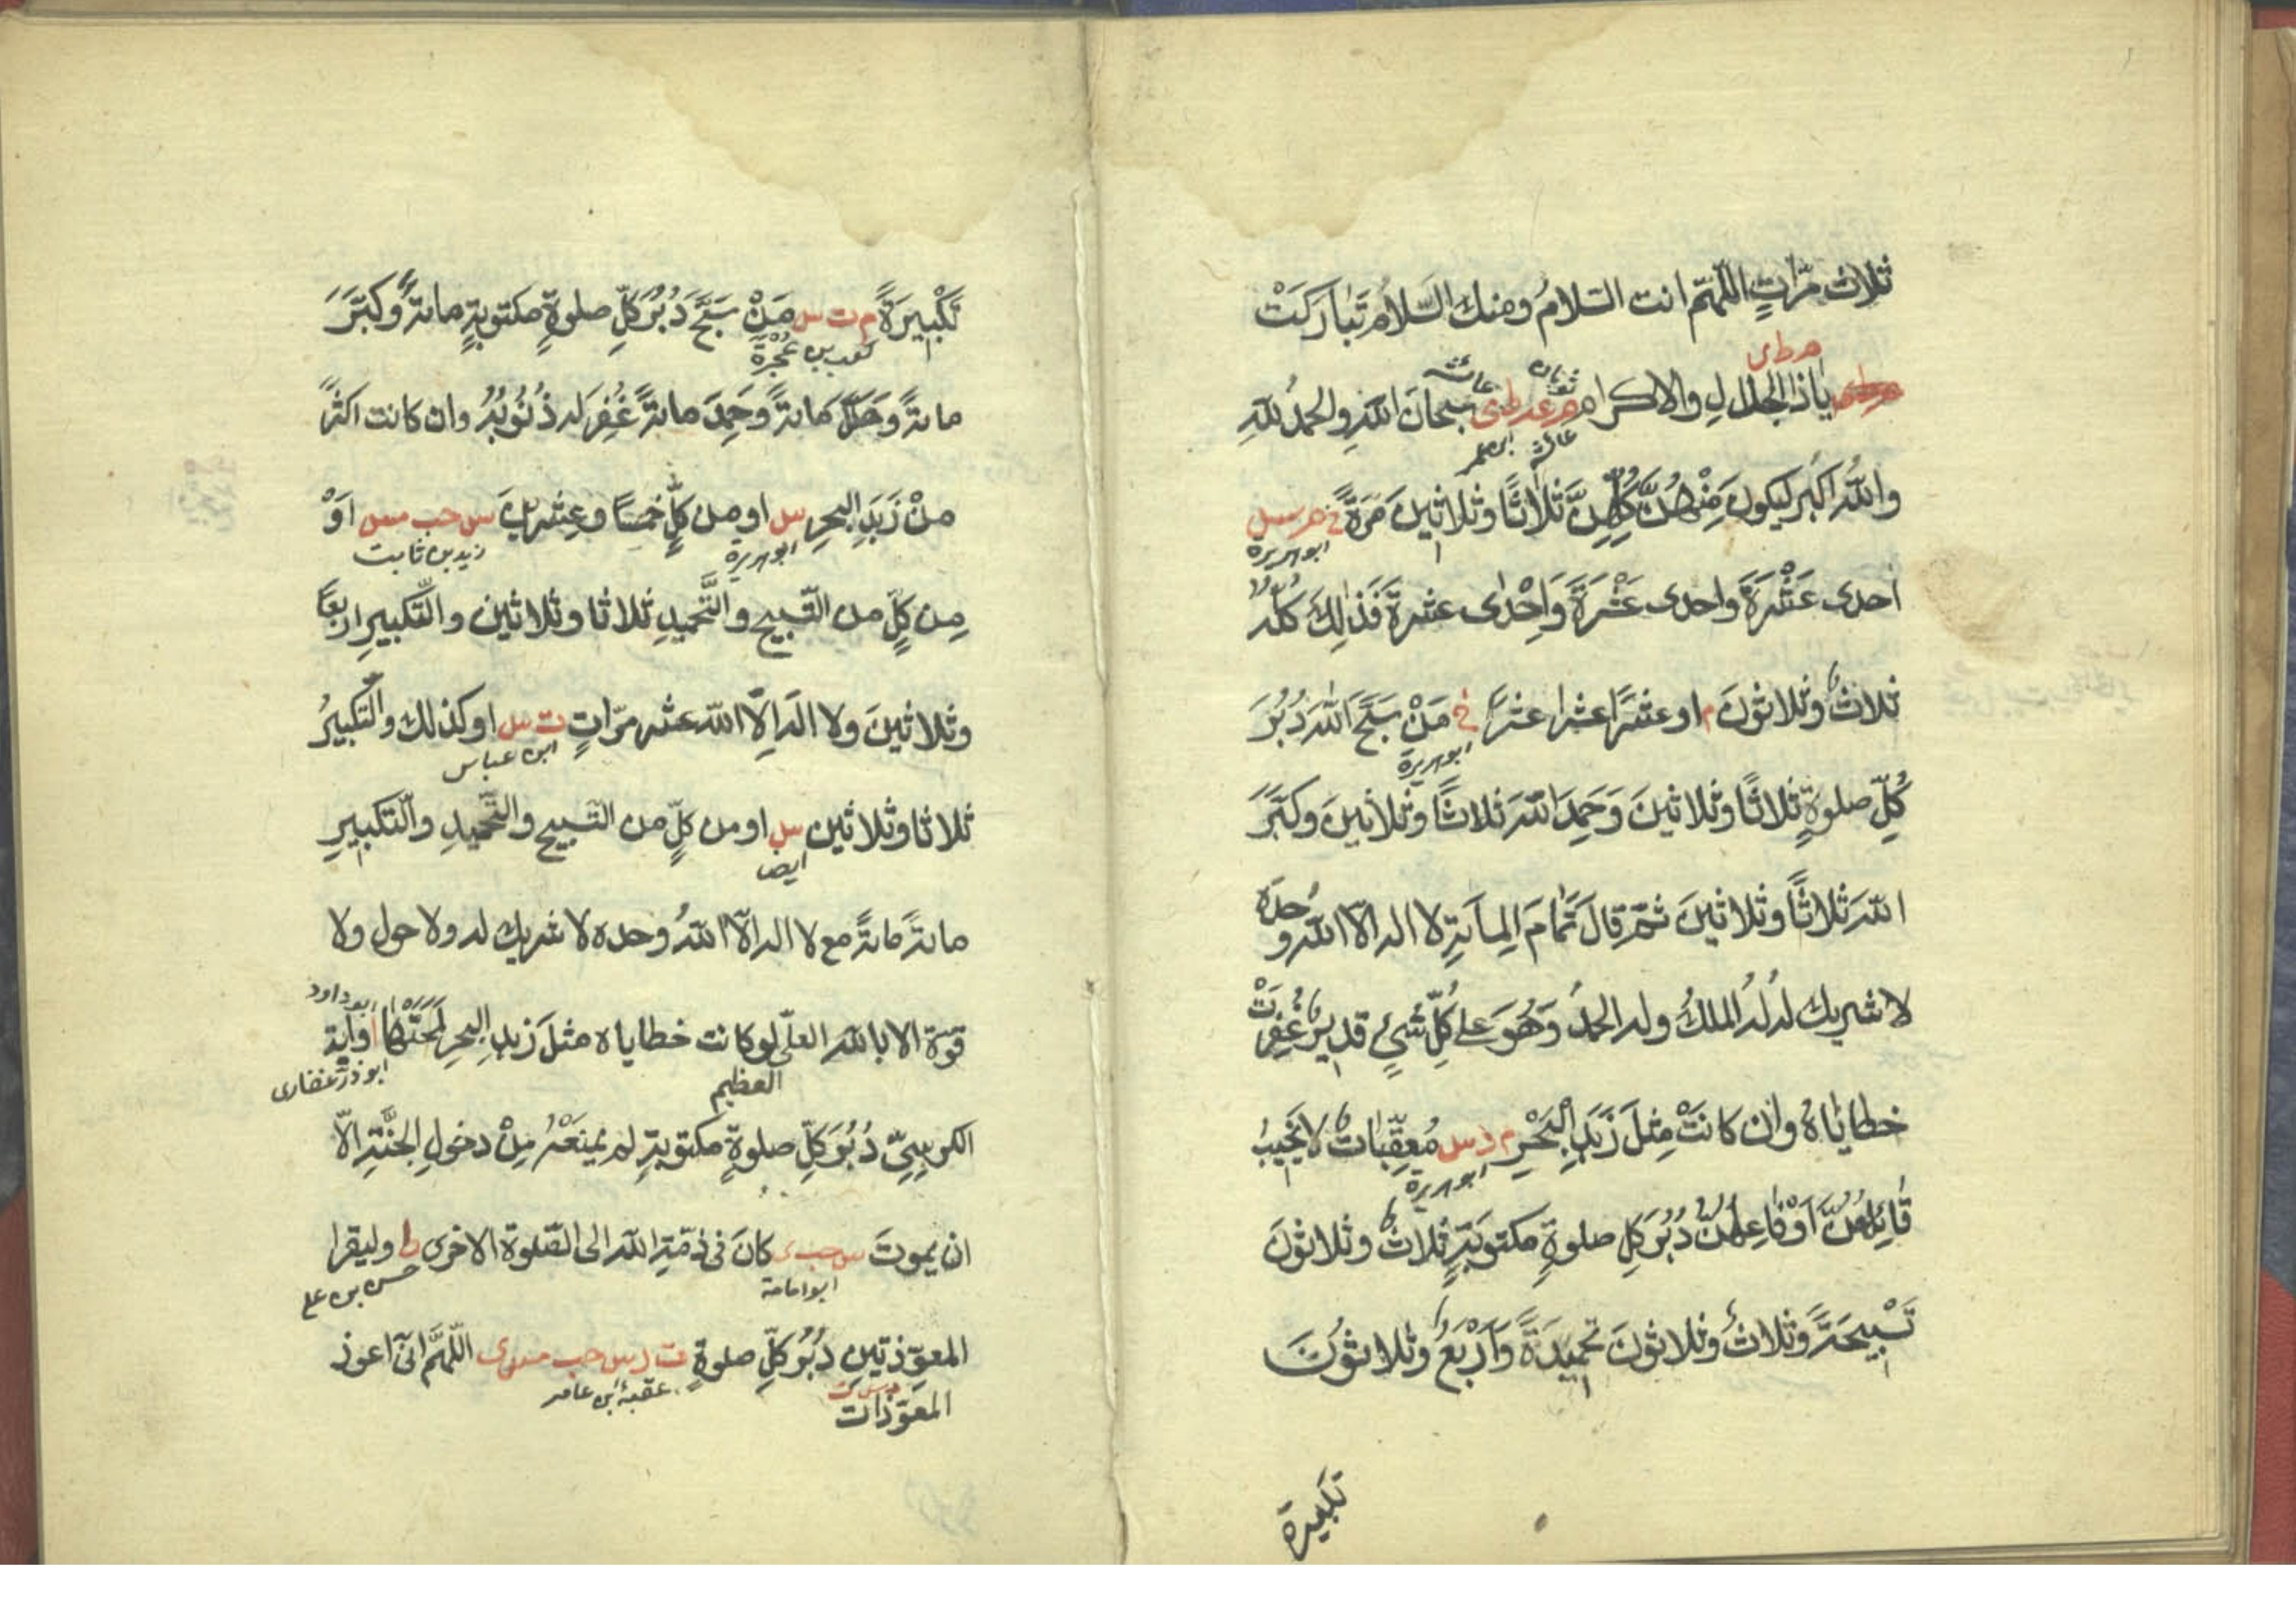 ثلاث مرّاتٍ اللّهمّ انت السّلامُ ومنك السّلام تَبَارَكْتَ
مه طى
ياذا الجلال والاكرام مه عه طى سبحانَ اللّٰهِ والحمدُ للّٰهِ
ثوبان
عائشة
ابن عمر
واللّٰهُ اكبر ليكونَ مِنْهُنَّ كُلِّهِنَّ ثلاثًا وثلاثينَ مَرّةً خ م س
ابوهريرة
احدى عَشْرَةَ واحدى عَشْرَةَ وَاِحْدٰى عشرةَ فَذٰلِكَ كُلُّهُ
ثلاثٌ وثلاثونَ م او عشرًا عشرا عشرًا خ مَنْ سَبَّحَ اللّٰهَ دُبُرَ
ابوهريرة
كُلِّ صلوةٍ ثلاثًا وثلاثينَ وَحَمِدَ اللّٰهَ ثلاثًا وثلاثينَ وكَبَّرَ
اللّٰهَ ثلاثًا وثلاثينَ ثمّ قالَ تَمامَ المِائَةِ لا اله الّا اللّٰه وحدَه
لا شريك لهُ لهُ الملكُ وله الحمدُ وَهُوَ على كُلِّ شَيْءٍ قديرٌ غُفِرَتْ
خطاياهُ وان كانَتْ مِثْلَ زَبَدِ البَحْرِ م د س مُعَقِّبَاتٌ لا يَخِيبُ
ابوهريرة
قَائِلُهُنَّ اَوْ فَاعِلُهُنَّ دُبُرَ كلِ صلوةٍ مكتوبَةٍ ثلاثٌ وثلاثونَ
تَسْبِيحَةً وثلاثٌ وثلاثونَ تحميدَةً وَاَرْبَعٌ وثلاثونَ
تكبيرة
تَكْبِيرَةً م ت س مَنْ سَبَّحَ دُبُرَ كلِّ صلوةٍ مكتوبةٍ مائةً وكَبَّرَ
كعب بن عُجْرَة
مائةً وَهَلَّلَ مائةً وحَمِدَ مائةً غُفِرَ له ذُنُوبُهُ وان كانت اكثرَ
مِنْ زَبَدِ البحرِ س او من كلٍّ خمسًا وعِشْرينَ س حب مس اَوْ
ابوهريرة
زيد بن ثابت
مِن كلٍّ من التّسبيح والتّحميدِ ثلاثا وثلاثين والتّكبيرِ اربعًا
وثلاثينَ ولا الٰه الّا اللّٰه عشر مرّاتٍ ت س او كذلك والتّكبيرُ
ابن عباس
ثلاثا وثلاثين س او من كلٍّ من التّسبيح والتّحميدِ والتّكبيرِ
ايضا
مائةً مائةً مع لا اله الّا اللّٰهُ وحده لا شريك له ولا حول ولا
قوّة الا باللّٰه العلى لو كانت خطاياه مثلَ زبدِ البحرِ لَمَحَتْهَا ا واٰية
العظيم
ابوداود
ابوذر غفارى
الكرسيّ دُبُرَ كلِّ صلوةٍ مكتوبةٍ لم يمنعْهُ مِنْ دخولِ الجنّةِ الّا
ان يموتَ س حب ى كانَ فى ذمّةِ اللّٰه الى الصّلوة الاخرى ط وليقرا
ابوامامة
حسن بن على
المعوّذتينِ دُبُرَ كلِّ صلوةٍ ت د س حب مس ى اللّهمَّ انّى اعوذ
المعوّذات
عقبة بن عامر